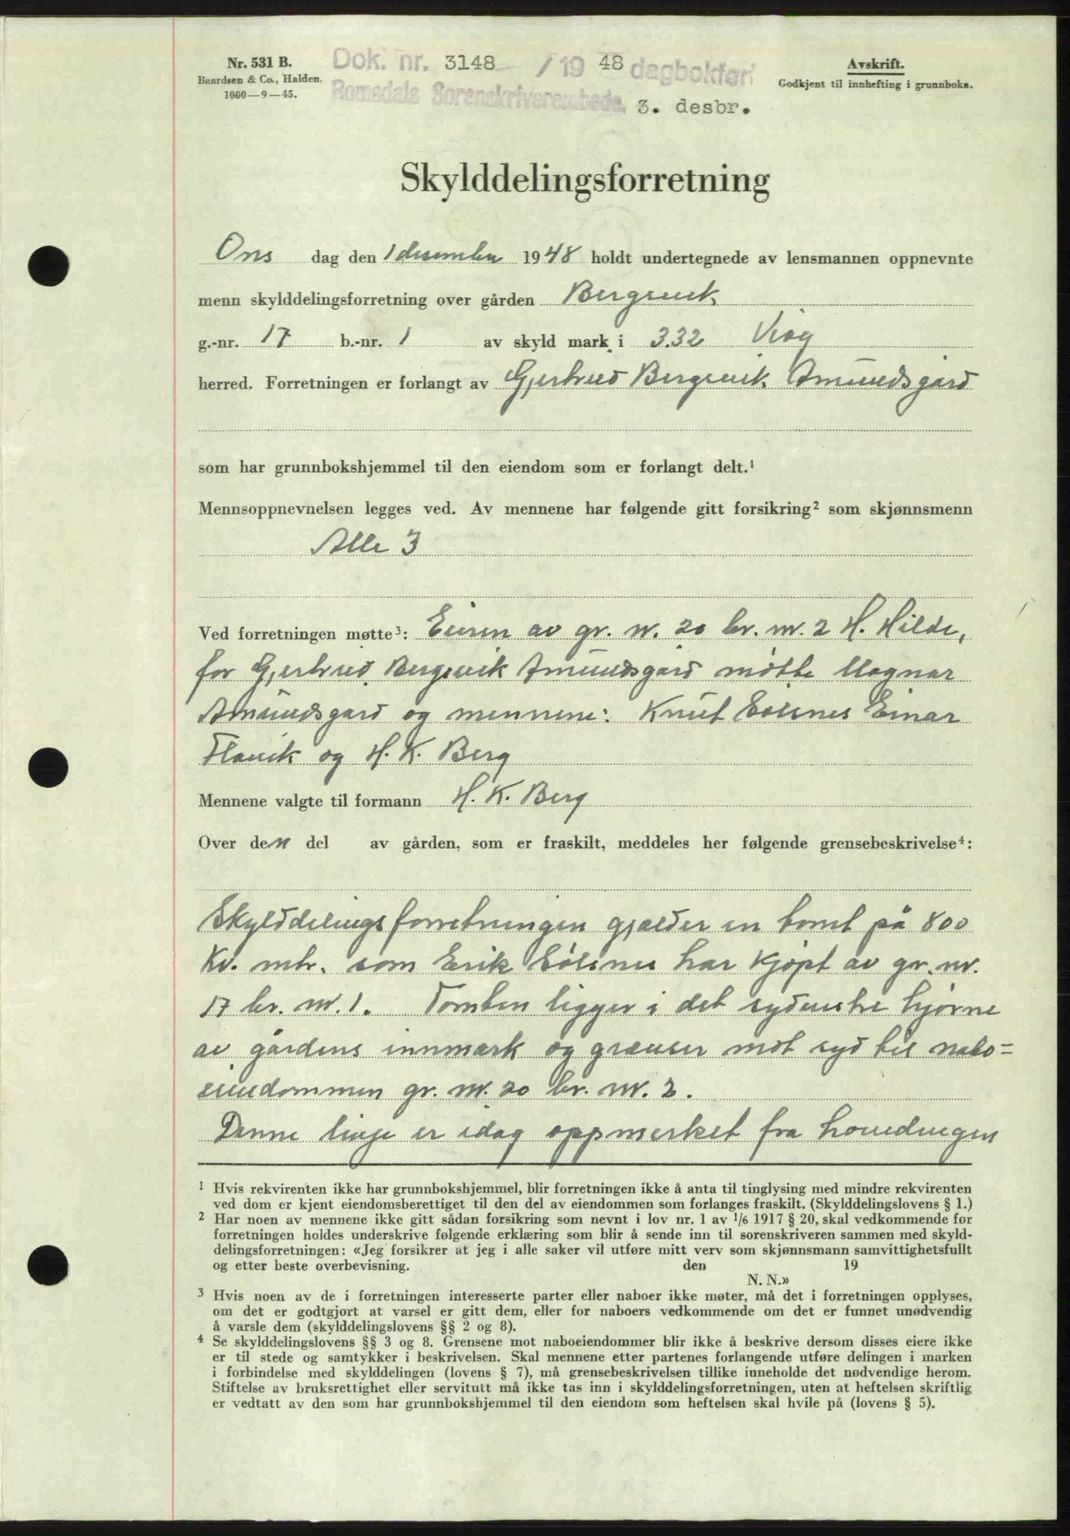 Nr. 531 B.
Baardsen & Co., Halden.
1000—9—45.
Dok. nr. 3148 / 19 48 dagbokført
Romsdals Sorenskriverembede. 3. desbr.
Avskrift.
Godkjent til innhefting i grunnboka.
Skylddelingsforretning
Ons dag den 1 desember 1948 holdt undertegnede av lensmannen oppnevnte
menn skylddelingsforretning over gården Bergsvik
g.-nr. 17 b.-nr. 1 av skyld mark i 3.32 Veøy
herred. Forretningen er forlangt av Gjertrud Bergsvik Amundsgård
som har grunnbokshjemmel til den eiendom som er forlangt delt.¹
Mennsoppnevnelsen legges ved. Av mennene har følgende gitt forsikring² som skjønnsmenn
Alle 3
Ved forretningen møtte³: Eieren av gr. nr. 20 br. nr. 2 H. Hilde,
for Gjertrud Bergsvik Amundsgård møtte Magnar
Amundsgard og mennene: Knut Eidsnes Einar
Flovik og H. K. Berg
Mennene valgte til formann H. K. Berg
Over den del av gården, som er fraskilt, meddeles her følgende grensebeskrivelse⁴:
Skylddelingsforretningen gjælder en tomt på 800
kv. mtr. som Erik Eidsnes har kjøpt av gr. nr.
17 br. nr. 1. Tomten ligger i det sydvestre hjørne
av gårdens innmark og grænser mot syd til nabo=
eiendommen gr. nr. 20 br. nr. 2.
Denne linje er idag oppmerket fra hovedvegen
¹ Hvis rekvirenten ikke har grunnbokshjemmel, blir forretningen ikke å anta til tinglysing med mindre rekvirenten
ved dom er kjent eiendomsberettiget til den del av eiendommen som forlanges fraskilt. (Skylddelingslovens § 1.)
² Har noen av mennene ikke gitt sådan forsikring som nevnt i lov nr. 1 av 1/6 1917 § 20, skal vedkommende før
forretningen holdes underskrive følgende erklæring som blir å sende inn til sorenskriveren sammen med skyld-
delingsforretningen: «Jeg forsikrer at jeg i alle saker vil utføre mitt verv som skjønnsmann samvittighetsfullt
og etter beste overbevisning. den 19
N. N.»
³ Hvis noen av de i forretningen interesserte parter eller naboer ikke møter, må det i forretningen opplyses,
om det er godtgjort at varsel er gitt dem, eller for naboers vedkommende om det er funnet unødvendig
å varsle dem (skylddelingslovens §§ 2 og 8).
⁴ Se skylddelingslovens §§ 3 og 8. Grensene mot naboeiendommer blir ikke å beskrive dersom disses eiere ikke
er til stede og samtykker i beskrivelsen. Skal mennene etter partenes forlangende utføre delingen i marken
i forbindelse med skylddelingen (lovens § 7), må grensebeskrivelsen tillike inneholde det nødvendige herom.
Stiftelse av bruksrettighet eller servitutt må ikke tas inn i skylddelingsforretningen, uten at heftelsen skriftlig
er vedtatt av den som har grunnbokshjemmel til den eiendom som heftelsen skal hvile på (lovens § 5).